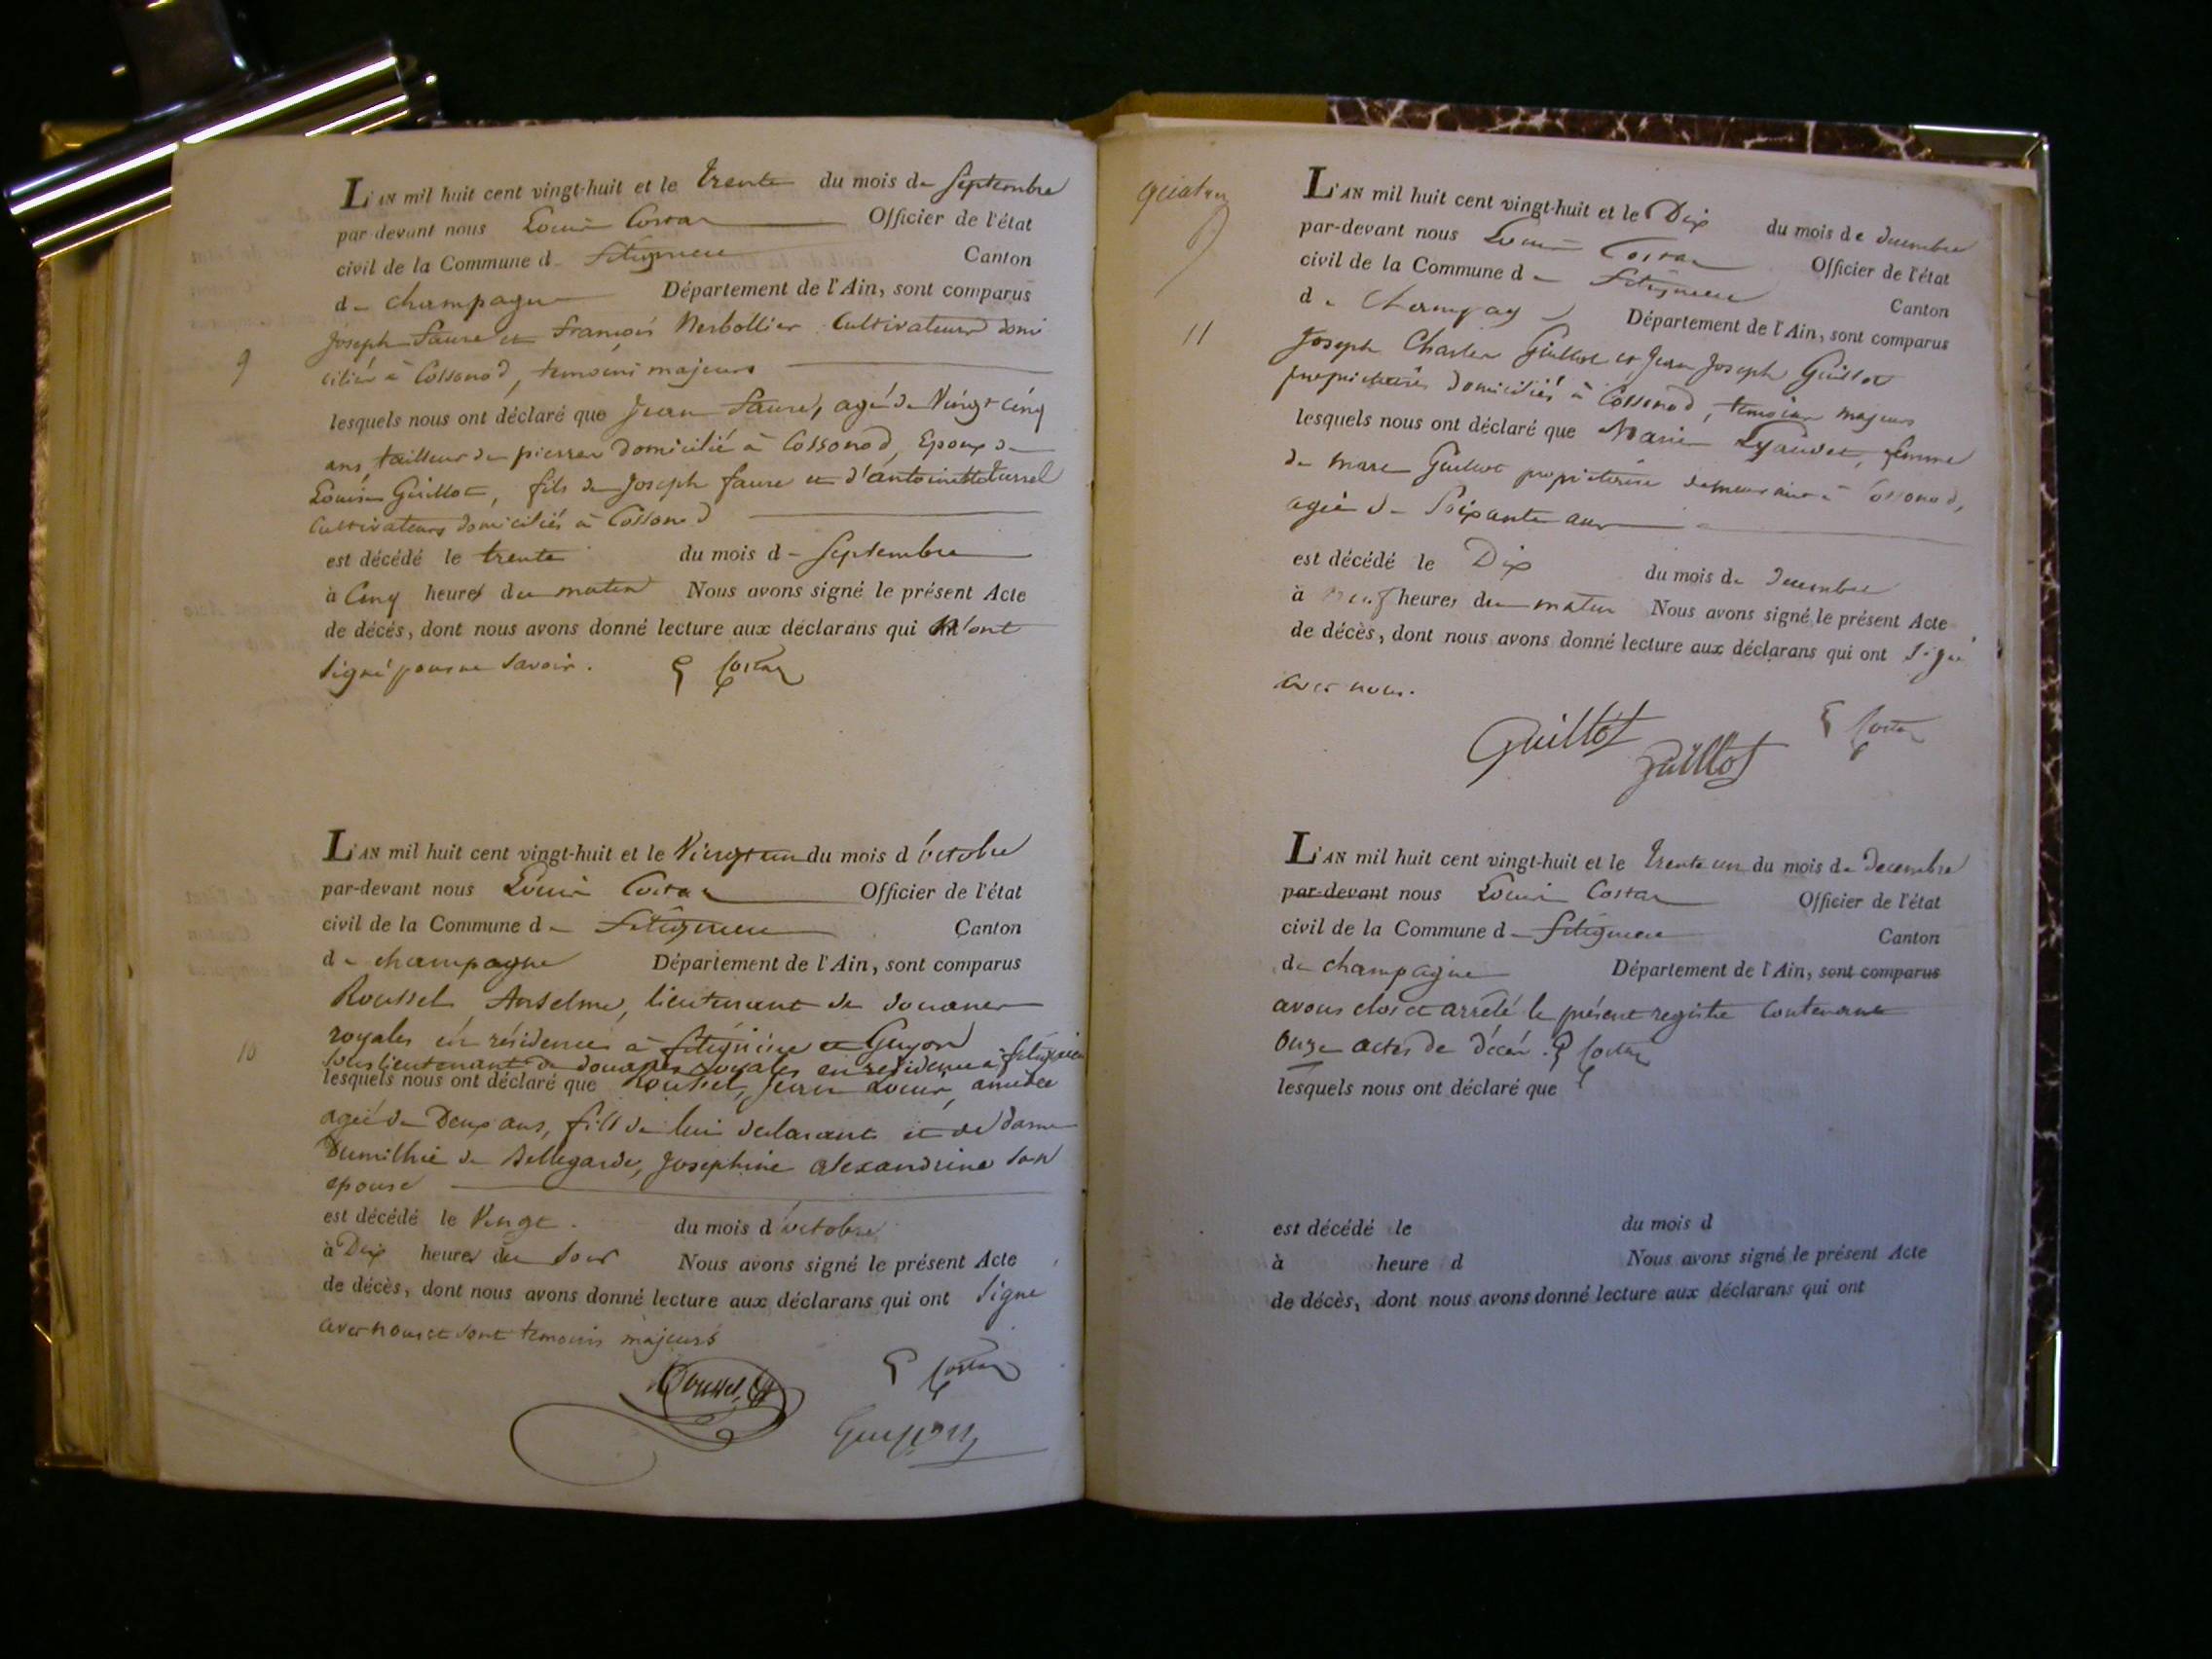 L'AN mil huit cent vingt-huit et le trente du mois de Septembre
par devant nous Louis Costaz Officier de l'état
civil de la Commune de fitignieu Canton
de champagne Département de l'Ain, sont comparus
Joseph Faure et François Nerbollier Cultivateurs domi
9
ciliés à Cossonod, temoins majeurs
lesquels nous ont déclaré que Jean Faure, agé de Vingt cinq
ans tailleur de pierres domicilié à Cossonod, Epoux de
Louise Guillot, fils de Joseph faure et d'antoinette
Cultivateurs domiciliés à Cossonod
est décédé le trente du mois de Septembre
à Cinq heures du matin Nous avons signé le présent Acte
de décès, dont nous avons donné lecture aux déclarans qui n'ont
signé pour ne savoir. Costaz
L'AN mil huit cent vingt-huit et le Vingt un du mois d'octobre
par-devant nous Louis Costaz Officier de l'état
civil de la Commune de fitignieu Canton
de champagne Département de l'Ain, sont comparus
Roussel Anselme, lieutenant de douanes
royales en résidence à fitignieu et Guyon
10
sous lieutenant de douanes royales en residence à fitignieu
lesquels nous ont déclaré que Roussel, Jean Louis, amédée
agé de Deux ans, fils de lui declarant et de dame
de Bellegarde, Josephine alexandrine son
epouse
est décédé le Vingt. du mois d'octobre
à Dix heures du soir Nous avons signé le présent Acte
de décès, dont nous avons donné lecture aux déclarans qui ont signé
avec nous et sont temoins majeurs
Roussel Costaz
Guyon
quatre
L'AN mil huit cent vingt-huit et le Dix du mois de decembre
par-devant nous Louis Costaz Officier de l'état
civil de la Commune de fitignieu Canton
de Champag Département de l'Ain, sont comparus
11
Joseph Charles Guillot et Jean Joseph Guillot
propriétaires domiciliés à Cossonod, temoins majeurs
lesquels nous ont déclaré que Marie Lyaudet, femme
de marc Guillot propriétaire demeurant à Cossonod,
agée de Soixante ans
est décédé le Dix du mois de decembre
à neuf heures du matin Nous avons signé le présent Acte
de décès, dont nous avons donné lecture aux déclarans qui ont signé
avec nous.
Guillot Costaz
Guillot
L'AN mil huit cent vingt-huit et le trente un du mois de decembre
par-devant nous Louis Costaz Officier de l'état
civil de la Commune de fitignieu Canton
de champagne Département de l'Ain, sont comparus
avons clos et arrêté le présent registre contenant
onze actes de décés. Costaz
lesquels nous ont déclaré que
est décédé le du mois d
à heure d Nous avons signé le présent Acte
de décès, dont nous avons donné lecture aux déclarans qui ont